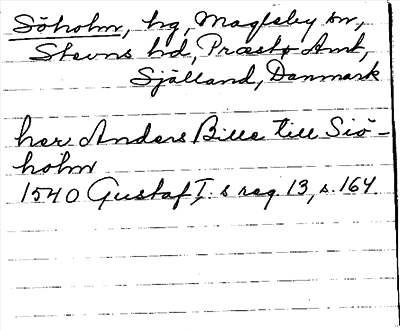 Söholm, hg, Magleby sn,
Stevns hd, Præstø Amt,
Sjålland, Danmark
her Anders Bille till Siö-
holm
1540 Gustaf I. s reg 13, s. 164.